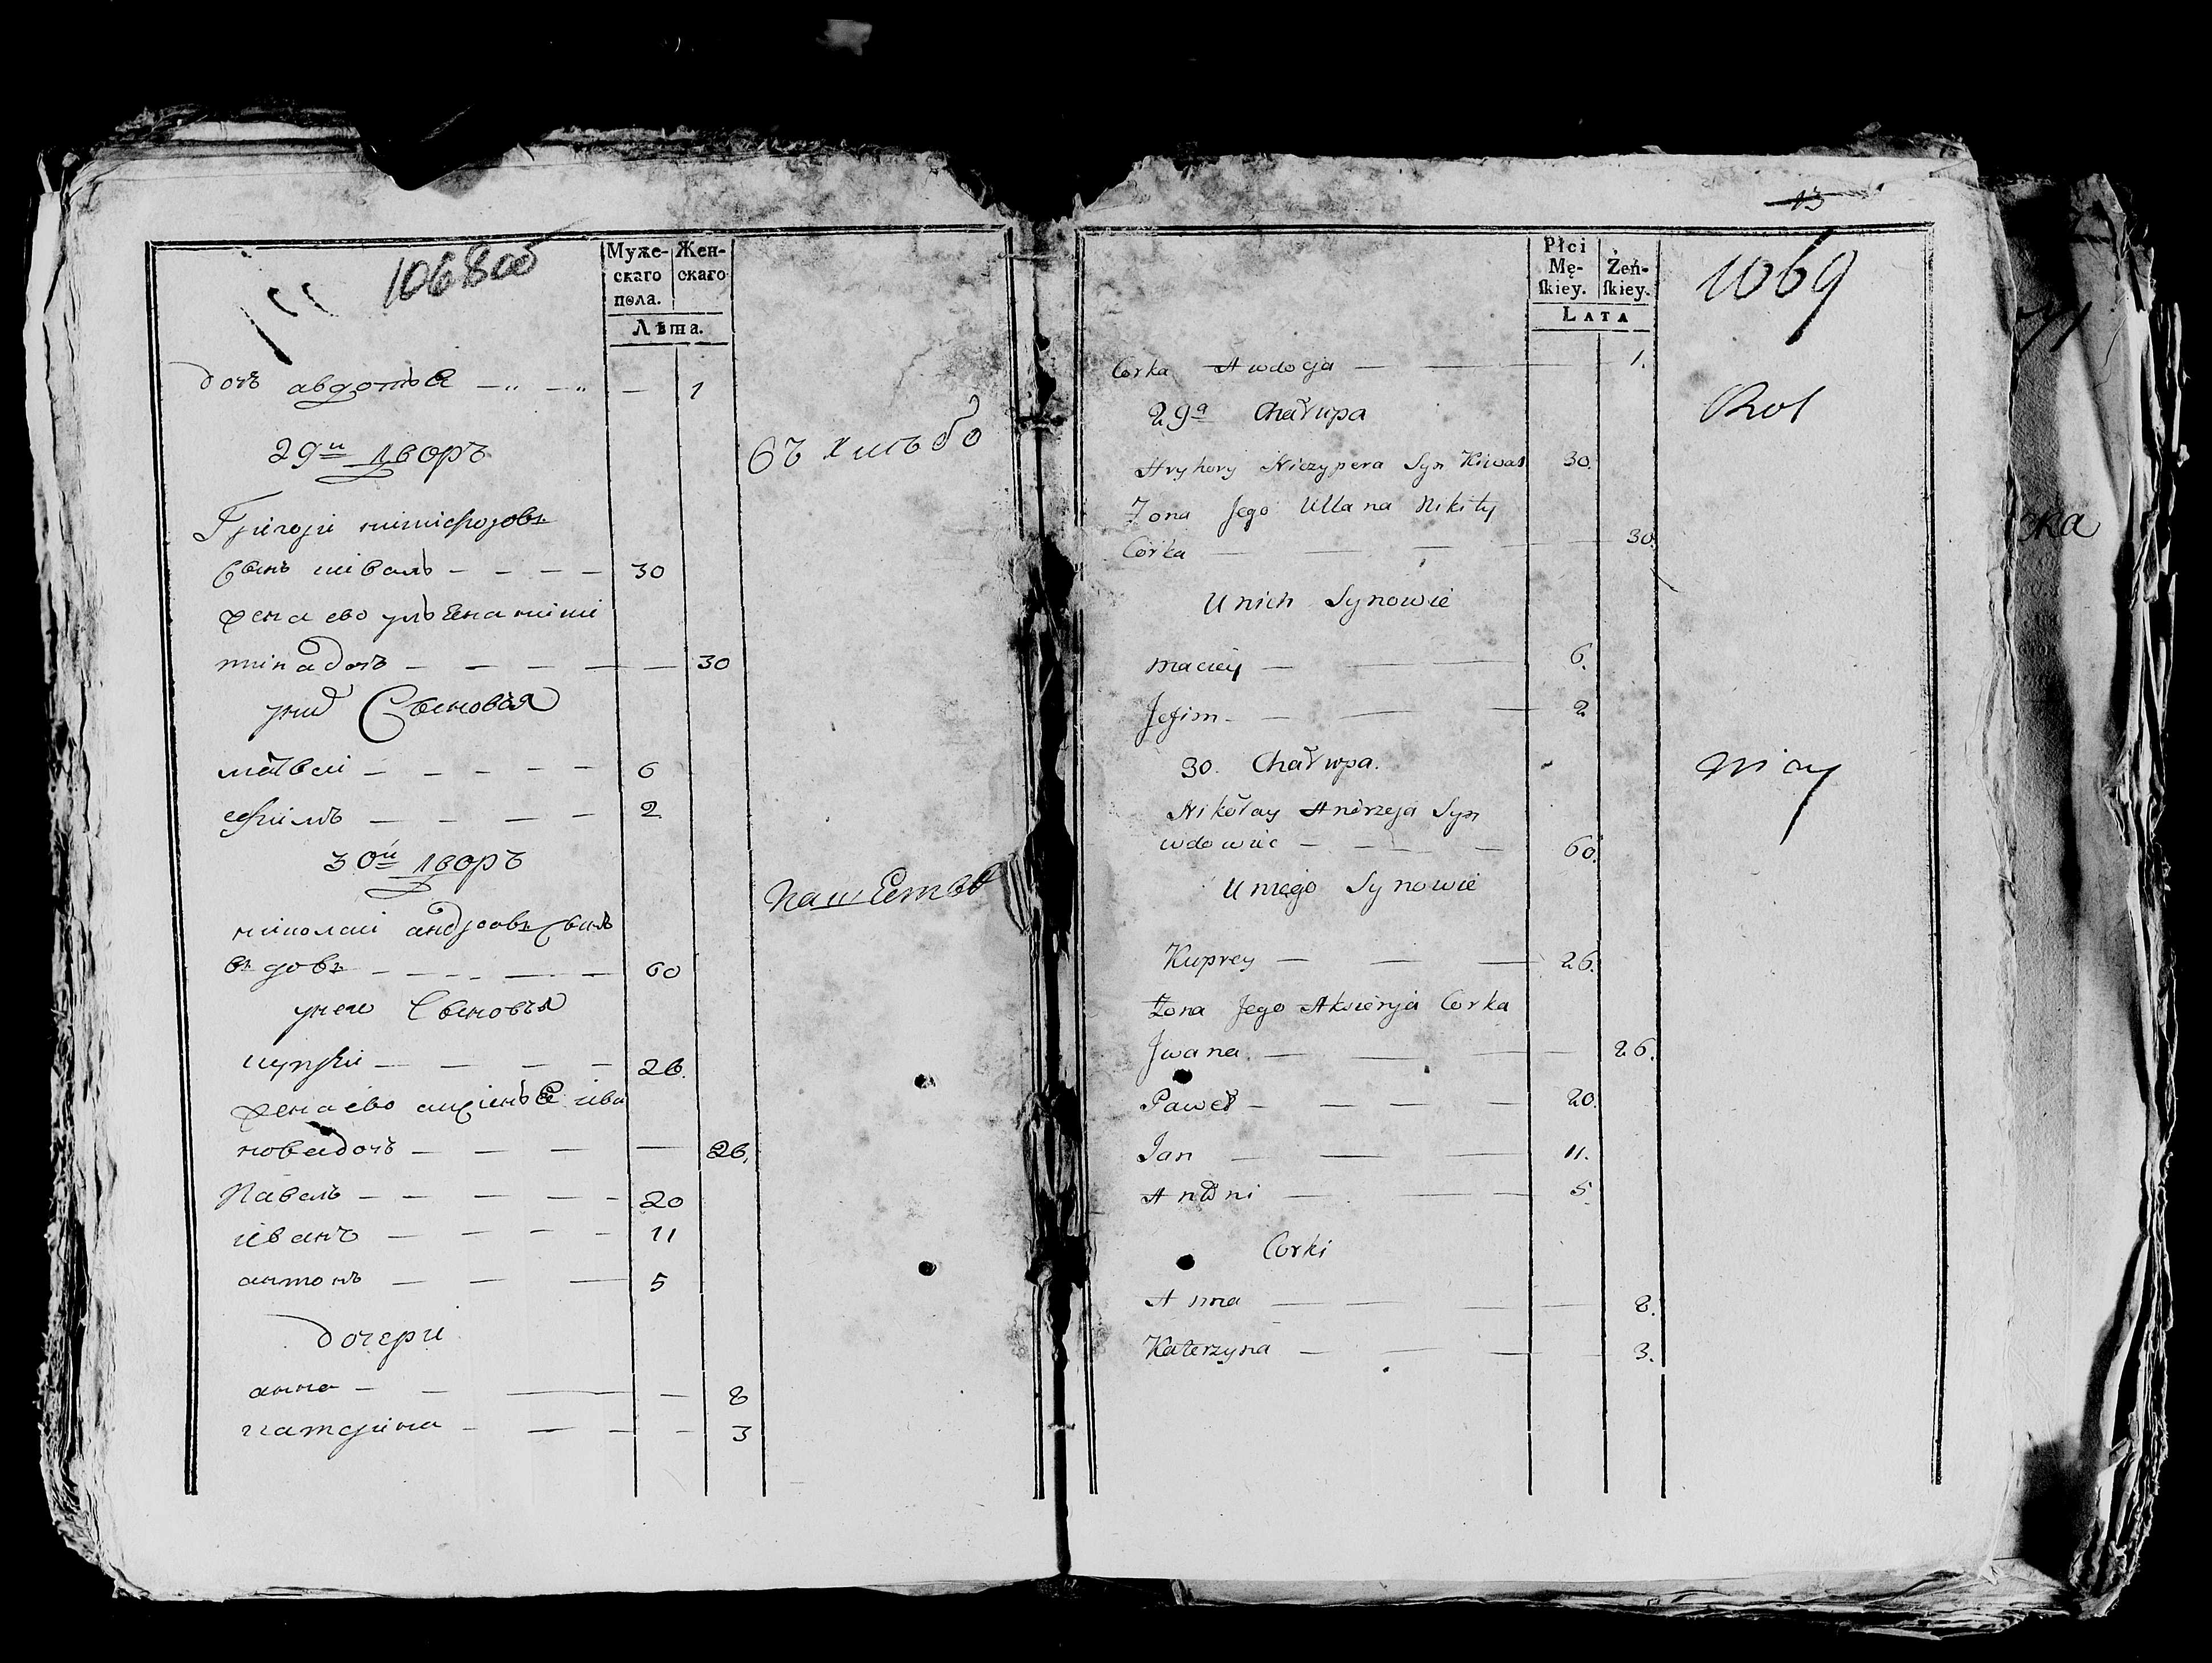 1068 об
Муже-
скаго
пола.
Жен-
скаго
Лѣта.
дочь авдотья 1
29й дворъ
Григори
сынъ 30
жена ево ульяна ники
тина дочь 30
у них Сыновья
матвеи 6
ефимъ 2
30й дворъ
николаи андреевъ сынъ
вдовъ 60
у нево Сыновья
купреи 26
жена ево аксинья ива
нова дочь 26.
Павелъ 20
иванъ 11
антонъ 5
дочери
анна 8
катерина 3
13
Płci
Mę-
ſkiey.
Żeń-
ſkiey.
LATA
1069
Corka Awdocja 1.
29a Chałupa
Hryhory Niczypera Syn 30.
Zona Jego Ullana Nikity
Corka 30.
U nich Synowie
Maciey 6.
Jefim 2
30. Chałupa.
Nikołay Andrzeja Syn
wdowiec 60.
U niego Synowie
Kuprey 26.
Zona Jego Aksienja Corka
Jwana 26.
Paweł 20.
Jan 11.
Antoni 5.
Corki
Anna 8.
Katerzyna 3.